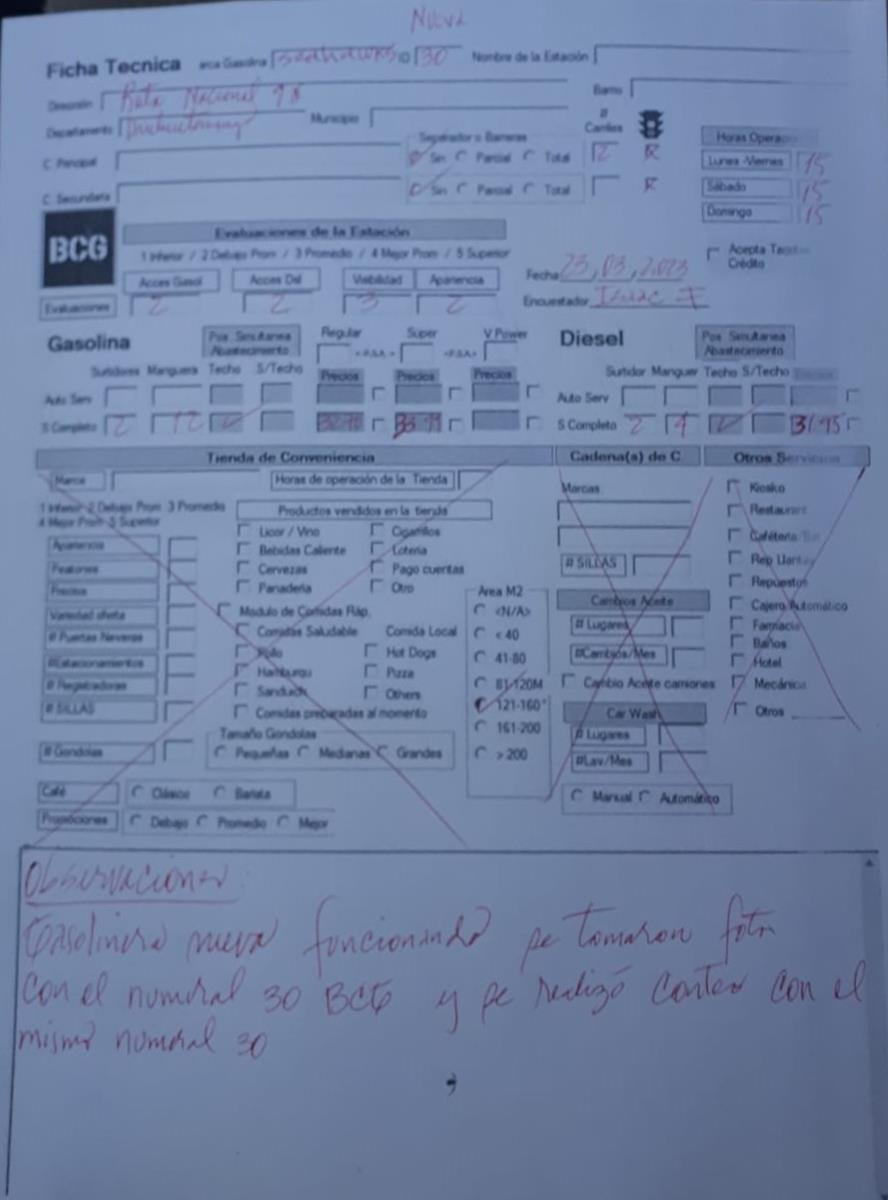 Nueva
Ficha Tecnica arca Gasolina Seahawks ID 30 Nombre de la Estación
Dirección Ruta Nacional 9 Barrio
Departamento Municipio # Carriles
Separador o Barreras
C Principal Sin Parcial Total 2
C Secundaria Sin Parcial Total
Horas Operac
Lunes-Viernes 15
Sábado 15
Domingo 15
BCG
Evaluaciones de la Estación
1 Inferior / 2 Debajo Prom / 3 Promedio / 4 Mejor Prom / 5 Superior
Acepta Crédito
Acces Gasol Acces Dsl Visibilidad Apariencia
Evaluaciones 2 2 3 2
Fecha 23, 03, 2023
Encuestador Isaac F
Gasolina Pos Simultanea Abastecimiento Regular Super V Power
Diesel Pos Simultanea Abastecimiento
Surtidores Manguera Techo S/Techo Precios Precios Precios
Surtidor Manguer Techo S/Techo
Auto Serv Auto Serv
S Completo 2 12 S Completo 2 4 31.95
Tienda de Conveniencia Cadena(s) de C. Otros Servicios
Marca Horas de operación de la Tienda
1 Inferior 2 Debajo Prom 3 Promedio
4 Mejor Prom 5 Superior
Productos vendidos en la tienda
Licor / Vino Cigarrillos
Bebidas Caliente Loteria
Cervezas Pago cuentas
Panaderia Otro
Apariencia
Peatones
Precios
Variedad oferta
# Puertas Neveras
#Estacionamientos
# Registradoras
# SILLAS
# Gondolas
Modulo de Comidas Ráp.
Comidas Saludable Comida Local
Pollo Hot Dogs
Hamburgu Pizza
Sanduich Others
Comidas preparadas al momento
Tamaño Gondolas
Pequeñas Medianas Grandes
Café Clásico Barista
Promociones Debajo Promedio Mejor
Area M2
<N/A>
< 40
41-80
81-120M
121-160*
161-200
> 200
Marcas
# SILLAS
Cambios Aceite
# Lugares
#Cambios/Mes
Cambio Aceite camiones
Car Wash
# Lugares
#Lav/Mes
Manual Automático
Kiosko
Restaurant
Cafétería
Rep Llantas
Repuestos
Cajero Automático
Farmacia
Baños
Hotel
Mecánica
Otros
Observaciones:
Gasolinera nueva funcionando se tomaron foto
con el numeral 30 BCG y se realizó conteo con el
mismo numeral 30